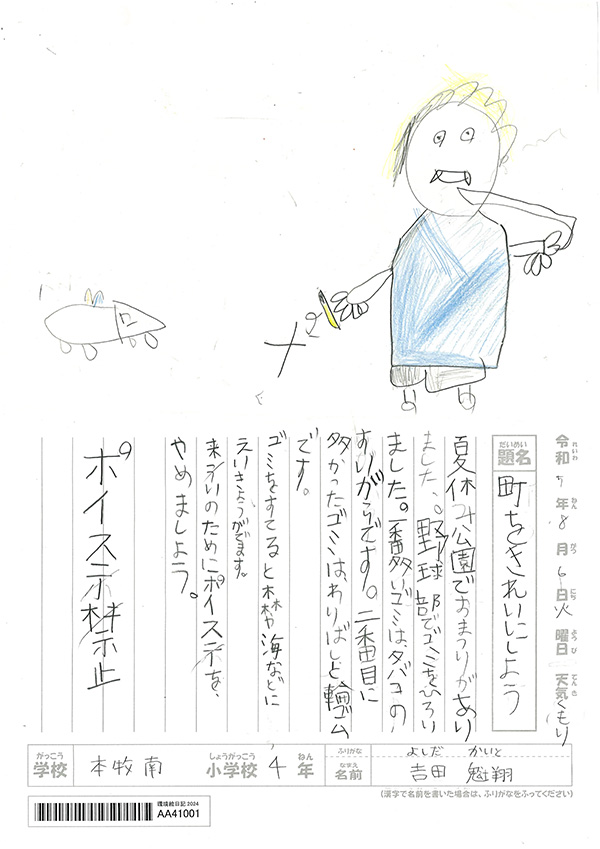 令和 年8月6日火曜日 天気くもり
れいわ ねん がつ にち ようび てんき
だいめい
題名 町をきれいにしよう
夏休み公園でおまつりがあり
ました。野球部でゴミをひろい
ました。一番多いゴミは、タバコの
すいがらです。二番目に
多かったゴミは、わりばしと輪ゴム
です。
ゴミをすてると森や海などに
えいきょうがでます。
のためにポイステを、
やめましょう。
ポイステ禁止
がっこう しょうがっこう ねん
学校 本牧南 小学校 4年
ふりがな よしだ かいと
なまえ
名前 吉田 魁翔
(漢字で名前を書いた場合は、ふりがなをふってください)
環境絵日記2024
AA41001